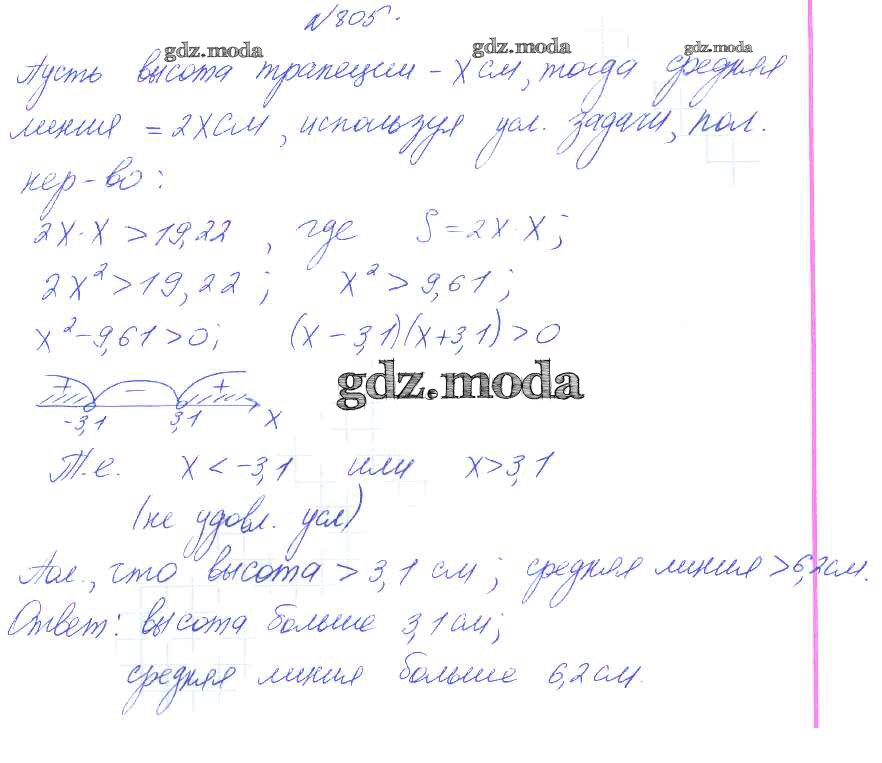 №805.
gdz.moda gdz.moda gdz.moda
Пусть высота трапеции - x см, тогда средняя
линия = 2x см, используя усл. задачи, пол.
нер-во:
2x·x > 19,22 , где S = 2x·x;
2x² > 19,22 ; x² > 9,61 ;
x² - 9,61 > 0; (x - 3,1)(x + 3,1) > 0
gdz.moda
+ - +
-3,1 3,1 x
Т.е. x < -3,1 или x > 3,1
(не удовл. усл)
Пол., что высота > 3,1 см ; средняя линия > 6,2 см.
Ответ: высота больше 3,1 см;
средняя линия больше 6,2 см.